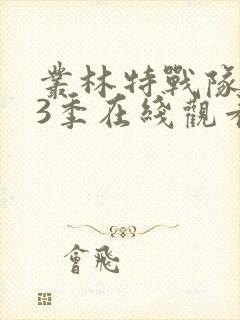 叢林特戰隊
3季在綫觀看
會飛